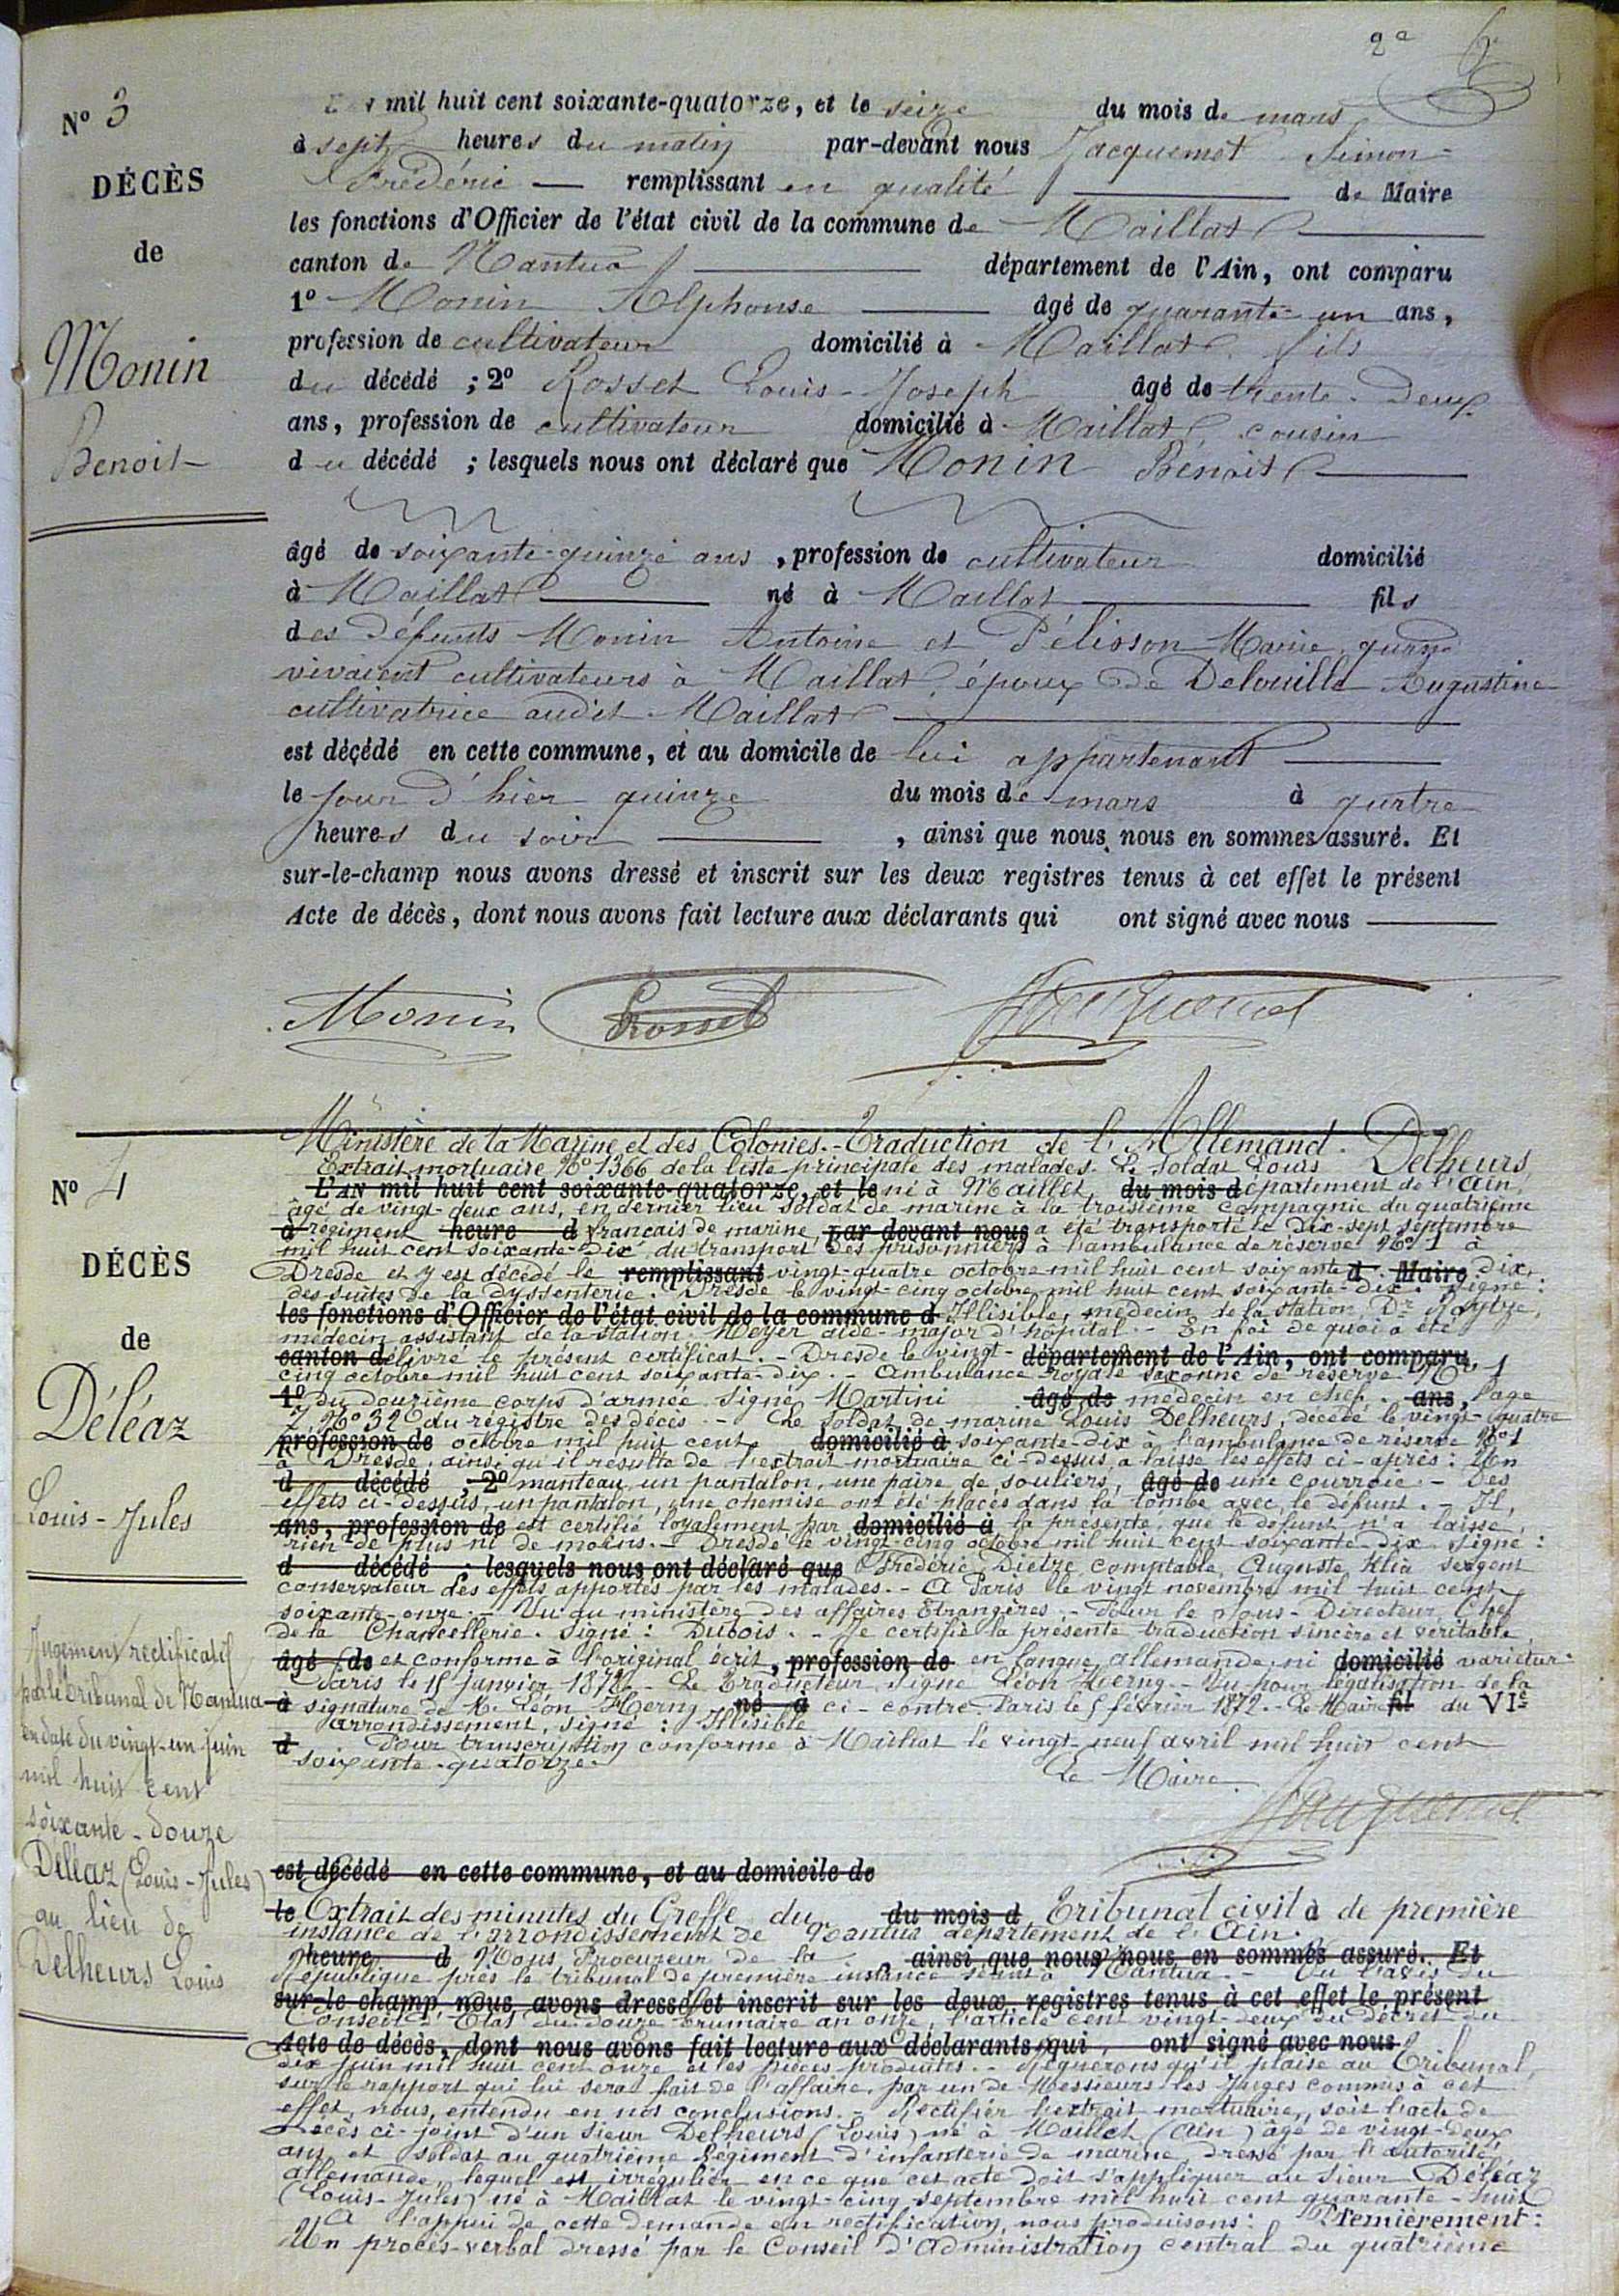 2e
N° 3
DÉCÈS
de
Monin
Benoit
mil huit cent soixante-quatorze, et le seize du mois de mars
à sept heures du matin par-devant nous Jacquemet Simon-
Frédéric — remplissant en qualité de Maire
les fonctions d'Officier de l'état civil de la commune de Maillat
canton de Nantua département de l'Ain, ont comparu
1° Monin Alphonse âgé de quarante-un ans,
profession de cultivateur domicilié à Maillat, fils
du décédé ; 2° Rosset Louis-Joseph âgé de trente-deux
ans, profession de cultivateur domicilié à Maillat, cousin
du décédé ; lesquels nous ont déclaré que Monin Benoit
âgé de soixante-quinze ans, profession de cultivateur domicilié
à Maillat né à Maillat fils
des défunts Monin Antoine et Pélisson Marie, quand
vivaient cultivateurs à Maillat, époux de Delouille Augustine
cultivatrice audit Maillat
est décédé en cette commune, et au domicile de lui appartenant
le jour d'hier quinze du mois de mars à quatre
heures du soir , ainsi que nous nous en sommes assuré. Et
sur-le-champ nous avons dressé et inscrit sur les deux registres tenus à cet effet le présent
Acte de décès, dont nous avons fait lecture aux déclarants qui ont signé avec nous
Monin Rosset Jacquemet
N° 4
DÉCÈS
de
Déléaz
Louis-Jules
Jugement rectificatif
par le tribunal de Nantua
en date du vingt-un juin
mil huit cent
soixante-douze
Déléaz (Louis-Jules)
au lieu de
Delheurs Louis
Ministère de la Marine et des Colonies.- Traduction de l'Allemand. Delheurs
Extrait mortuaire N° 1366 de la liste principale des malades. Le soldat Louis
L'AN mil huit cent soixante-quatorze, et le né à Maillet, du mois d département de l'Ain,
âgé de vingt-deux ans, en dernier lieu soldat de marine à la troisième compagnie du quatrième
à régiment heure d français de marine, par devant nous a été transporté le dix-sept septembre
mil huit cent soixante-dix, du transport des prisonniers à l'ambulance de réserve N° 1 à
Dresde et y est décédé le remplissant vingt-quatre octobre mil huit cent soixante d Maire dix,
des suites de la dyssenterie. Dresde le vingt-cinq octobre mil huit cent soixante-dix. Signé :
les fonctions d'Officier de l'état civil de la commune d Illisible, médecin de la station, Dr
médecin assistant de la station. Meyer aide-major d'hôpital. En foi de quoi a été
canton d délivré le présent certificat. - Dresde le vingt- département de l'Ain, ont comparu
cinq octobre mil huit cent soixante-dix. - Ambulance royale saxonne de réserve N° 1
1° du douzième corps d'armée. Signé Martini âgé de médecin en chef. ans, Page
7 N° 32 du régistre des décès. - Le soldat de marine Louis Delheurs, décédé le vingt-quatre
profession de octobre mil huit cent domicilié à soixante-dix à l'ambulance de réserve N° 1
à Dresde, ainsi qu'il résulte de l'extrait mortuaire ci-dessus, a laissé les effets ci-après : Un
d décédé ; 2° manteau, un pantalon, une paire de souliers, âgé de une courroie. - Des
effets ci-dessus, un pantalon, une chemise ont été placés dans la tombe avec le défunt. - Il
ans, profession de est certifié loyalement par domicilié à la présente, que le défunt n'a laissé
rien de plus ni de moins. - Dresde le vingt-cinq octobre mil huit cent soixante-dix. Signé :
d décédé ; lesquels nous ont déclaré que Frédéric Dietze, comptable, Auguste Klia sergent
conservateur des effets apportés par les malades. - A Paris le vingt novembre mil huit cent
soixante-onze. - Vu au ministère des affaires étrangères. - Pour le Sous-Directeur Chef
de la Chancellerie. Signé : Dubois. - Je certifie la présente traduction sincère et véritable
âgé de et conforme à l'original écrit, profession de en langue allemande, ni domicilié varietur.
Paris le 15 janvier 1872. - Le Traducteur, Signé Léon Herng - Vu pour légalisation de la
à signature de M. Léon Herng né à ci-contre. Paris le 5 février 1872. - Le Maire fil du VIe
arrondissement, signé : Illisible
d Pour transcription conforme à Maillat le vingt-neuf avril mil huit cent
soixante-quatorze.
Le Maire.
Jacquemet
est décédé en cette commune, et au domicile de
le Extrait des minutes du Greffe du du mois d Tribunal civil à de première
instance de l'arrondissement de Nantua département de l'Ain.
heure d Nous Procureur de la , ainsi que nous nous en sommes assuré. Et
République près le tribunal de première instance séant à Nantua. - Vu l'avis du
sur-le-champ nous avons dressé et inscrit sur les deux registres tenus à cet effet le présent
Conseil d'État du douze brumaire an onze, l'article cent vingt-deux du décret du
Acte de décès, dont nous avons fait lecture aux déclarants qui ont signé avec nous
dix juin mil huit cent onze et les pièces produites. - Requérons qu'il plaise au Tribunal,
sur le rapport qui lui sera fait de l'affaire, par un de Messieurs les Juges commis à cet
effet, nous, entendu en nos conclusions. - Rectifier l'extrait mortuaire, soit l'acte de
décès ci-joint d'un sieur Delheurs (Louis) né à Maillet (Ain) âgé de vingt-deux
ans et soldat au quatrième Régiment d'infanterie de marine dressé par l'autorité
allemande, lequel est irrégulier en ce que cet acte doit s'appliquer au sieur Déléaz
(Louis-Jules) né à Maillat le vingt-cinq septembre mil huit cent quarante-huit
A l'appui de cette demande en rectification, nous produisons : Premièrement :
Un procès-verbal dressé par le Conseil d'Administration central du quatrième